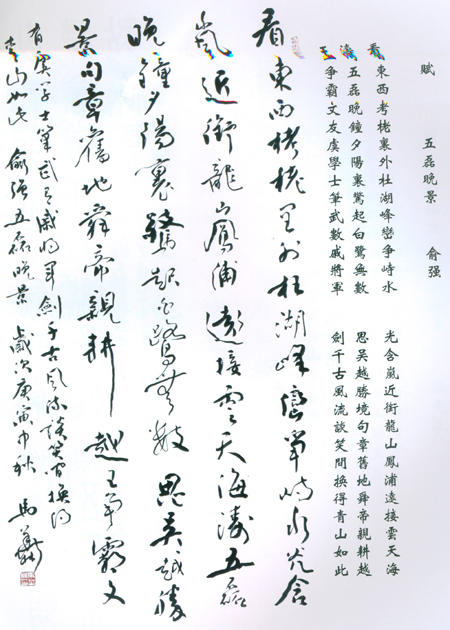 賦 五磊晚景 俞强
看東西考栳裏外杜湖峰巒争峙水光含嵐近銜龍山鳳浦遠接雲天海
濤五磊晚鐘夕陽裏驚起白鷺無數思吴越勝境句章舊地舜帝親耕越
王争霸文友虞學士筆武數戚將軍劍千古風流談笑間换得青山如此
看東西栲栳里外杜湖峰巒争峙水光含
嵐近銜龍山鳳浦遠接雲天海濤五磊
晚鐘夕陽裏驚起白鷺無數思吴越勝
景句章舊地舜帝親耕越王争霸文
有虞學士筆武有戚將軍劍千古風流談笑間换得
青山如此 俞强五磊晚景 歲次庚寅中秋 馬